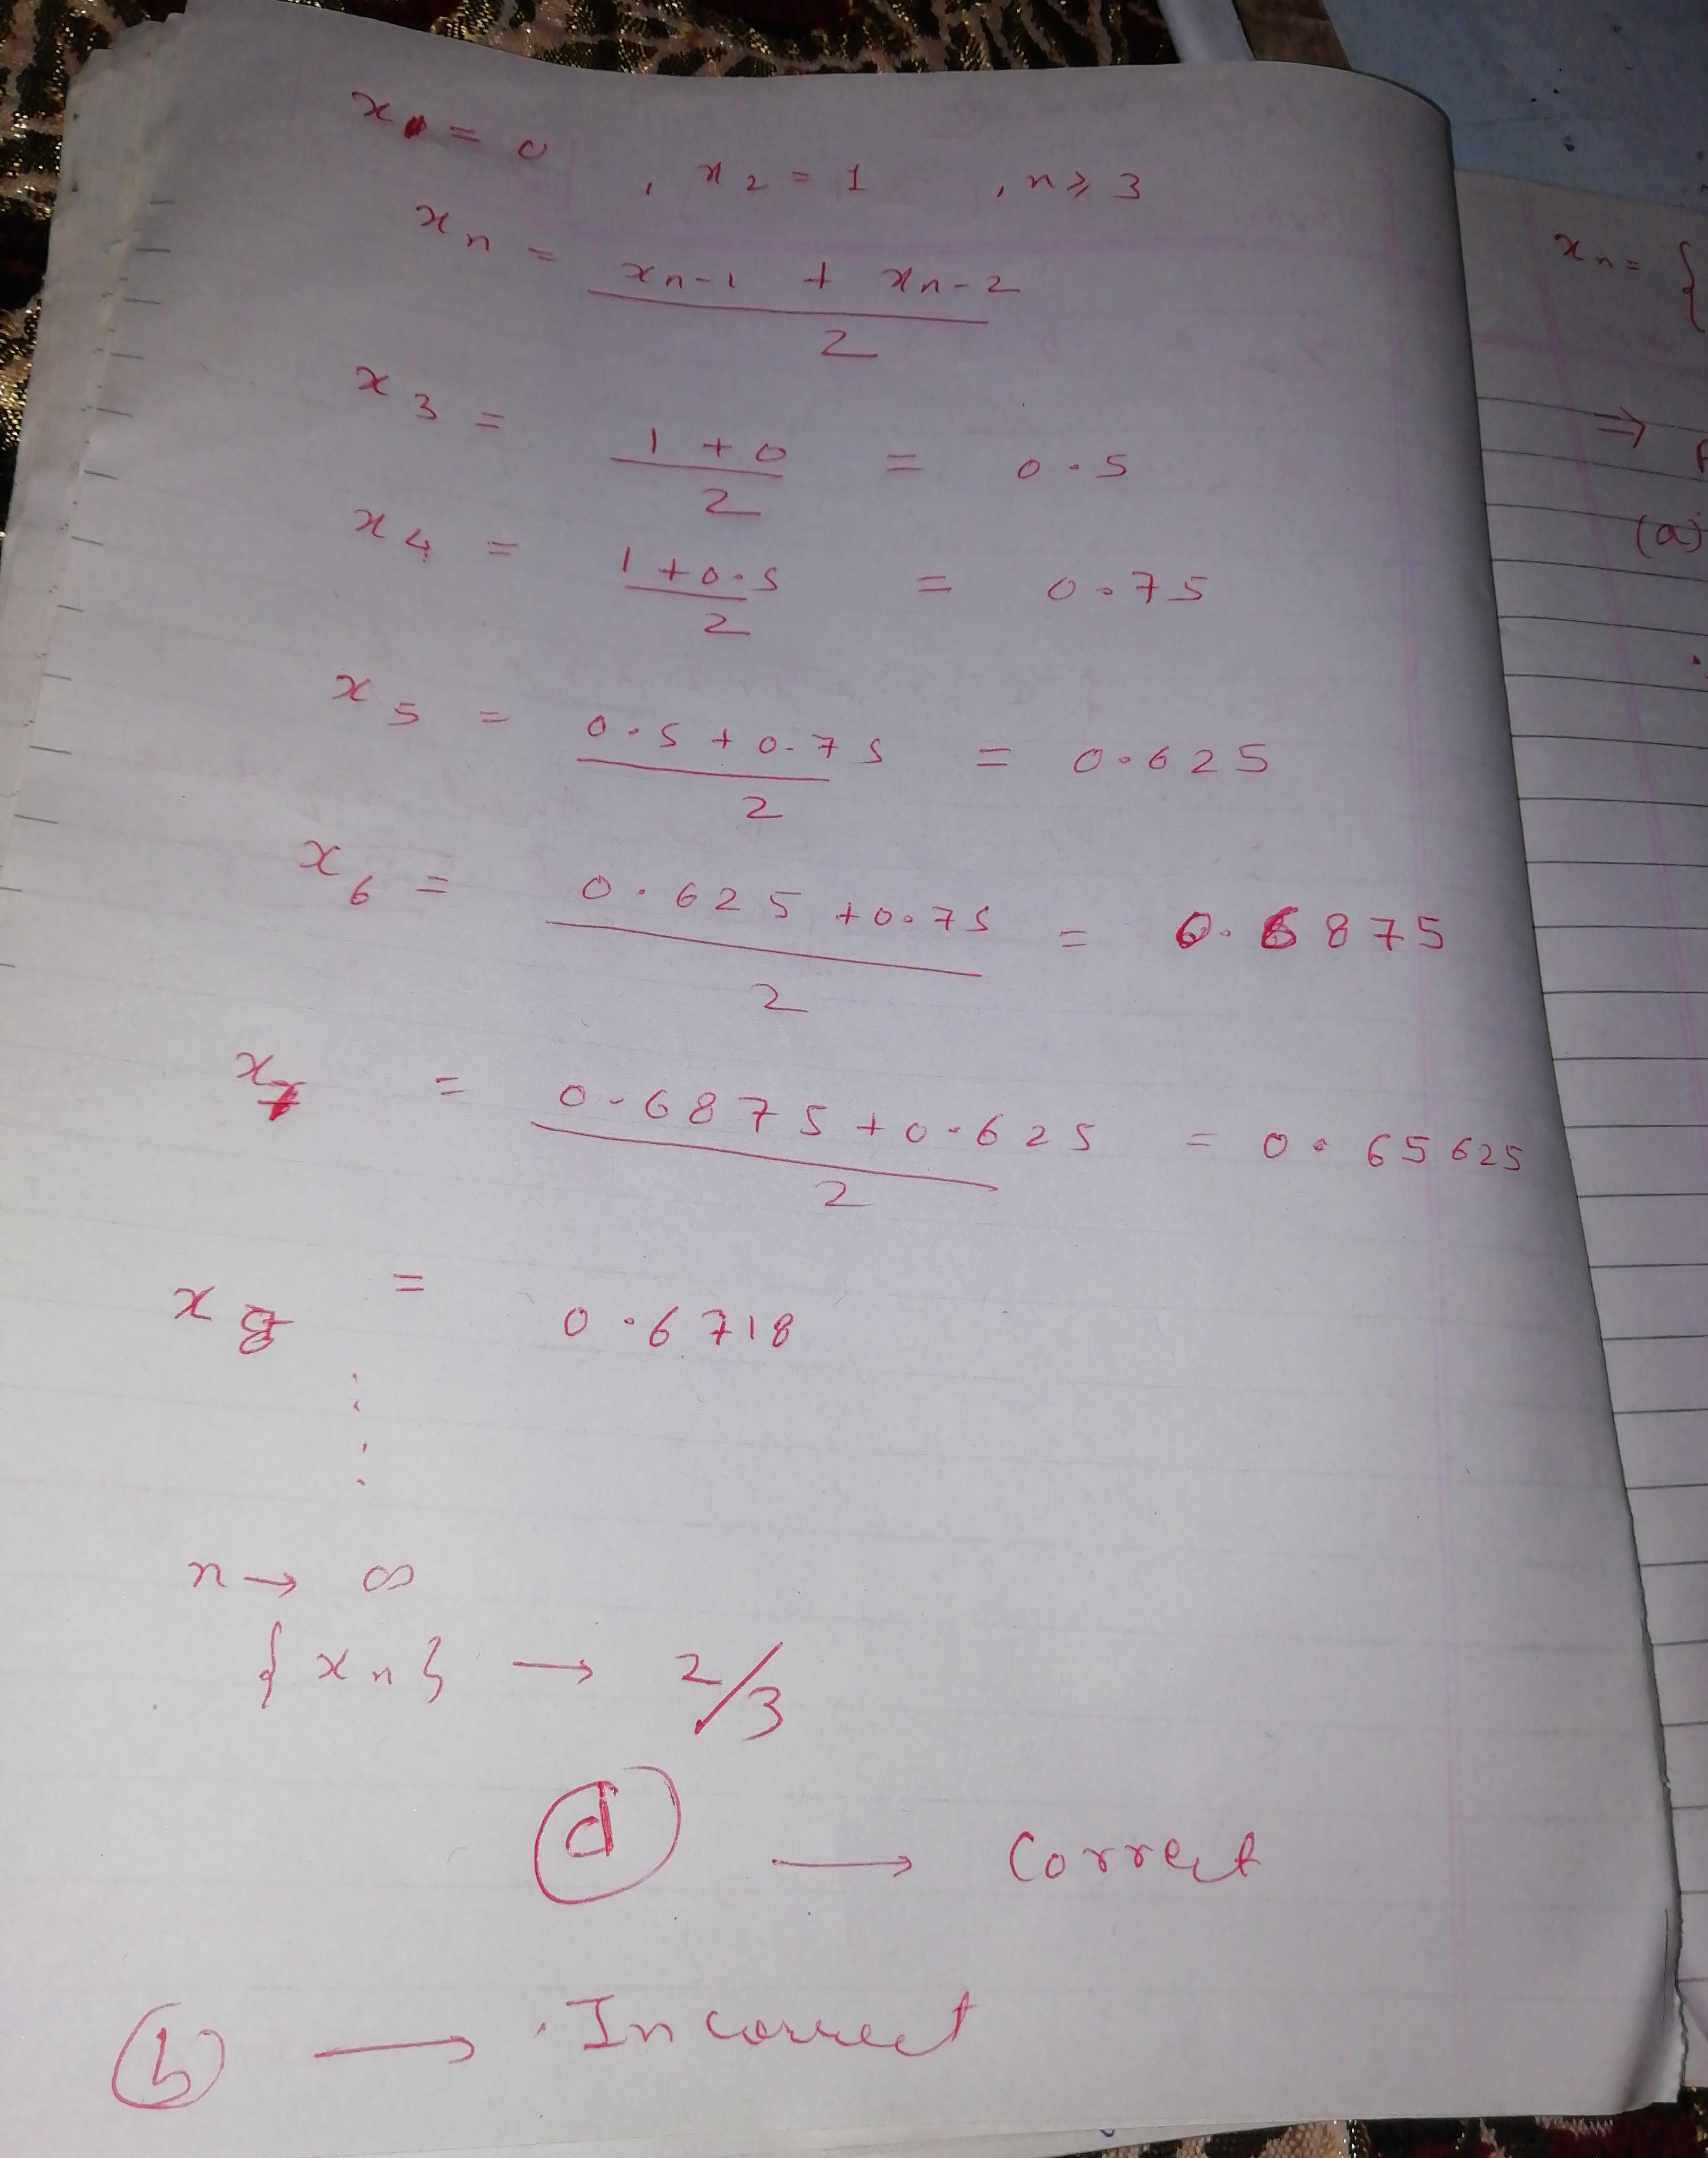 x₁ = 0 , x₂ = 1 , n ≥ 3
xₙ = (xₙ₋₁ + xₙ₋₂) / 2
x₃ = (1 + 0) / 2 = 0.5
x₄ = (1 + 0.5) / 2 = 0.75
x₅ = (0.5 + 0.75) / 2 = 0.625
x₆ = (0.625 + 0.75) / 2 = 0.6875
x₇ = (0.6875 + 0.625) / 2 = 0.65625
x₈ = 0.6718
n → ∞
{xₙ} → 2/3
(d) → Correct
(b) → Incorrect
xₙ = {
⇒
(a)